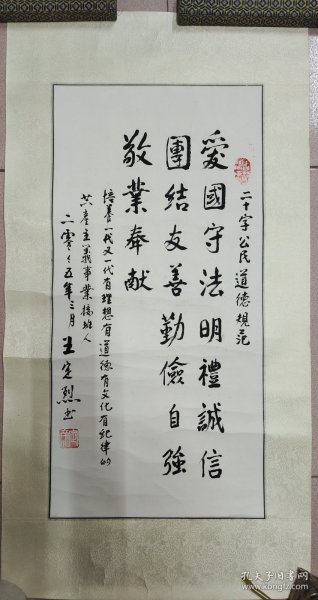 二十字公民道德規范
愛國守法明禮誠信
團結友善勤儉自強
敬業奉献
培養一代又一代有理想有道德有文化有紀律的
共產主義事業接班人
二零零五年三月 王定烈书
孔夫子旧书网